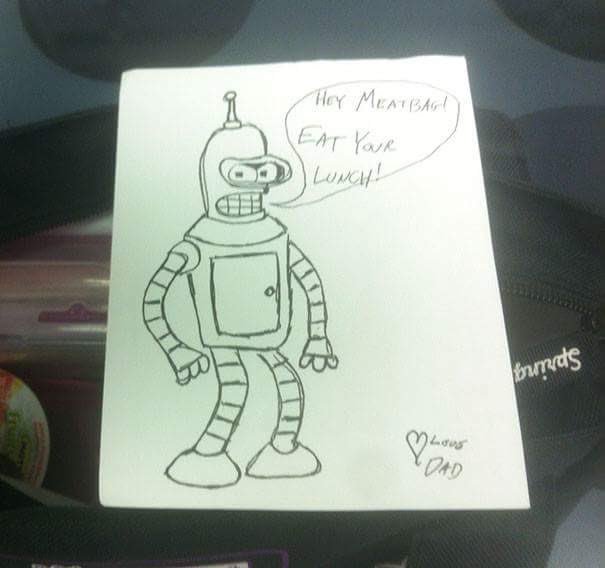 HEY MEATBAG!
EAT YOUR
LUNCH!
♡ LOVE
DAD